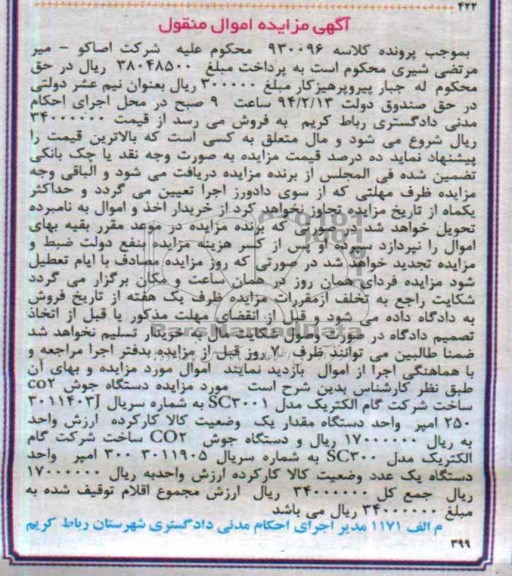 ۴۲۲
آگهی مزایده اموال منقول
بموجب پرونده کلاسه ۹۳۰۰۹۶ محکوم علیه شرکت اصاکو - میر
مرتضی شیری محکوم است به پرداخت مبلغ ۳۸۰۴۸۵۰۰ ریال در حق
محکوم له جبار پیروپرهیزکار مبلغ ۳۰۰۰۰۰ ریال بعنوان نیم عشر دولتی
در حق صندوق دولت ۹۴/۲/۱۳ ساعت ۹ صبح در محل اجرای احکام
مدنی دادگستری رباط کریم به فروش می رسد از قیمت ۳۴۰۰۰۰۰۰
ریال شروع می شود و مال متعلق به کسی است که بالاترین قیمت را
پیشنهاد نماید ده درصد قیمت مزایده به صورت وجه نقد یا چک بانکی
تضمین شده فی المجلس از برنده مزایده دریافت می شود و الباقی وجه
مزایده ظرف مهلتی که از سوی دادورز اجرا تعیین می گردد و حداکثر
یکماه از تاریخ مزایده تجاوز نخواهد کرد از خریدار اخذ و اموال به نامبرده
تحویل خواهد شد در صورتی که برنده مزایده در موعد مقرر بقیه بهای
اموال را نپردازد سپرده او پس از کسر هزینه مزایده بنفع دولت ضبط و
مزایده تجدید خواهد شد در صورتی که روز مزایده مصادف با ایام تعطیل
شود مزایده فردای همان روز در همان ساعت و مکان برگزار می گردد
شکایت راجع به تخلف ازمقررات مزایده ظرف یک هفته از تاریخ فروش
به دادگاه داده می شود و قبل از انقضای مهلت مذکور یا قبل از اتخاذ
تصمیم دادگاه در صورت وصول شکایت مال به خریدار تسلیم نخواهد شد
ضمنا طالبین می توانند ظرف ۷ روز قبل از مزایده بدفتر اجرا مراجعه و
با هماهنگی اجرا از اموال بازدید نمایند اموال مورد مزایده و بهای آن
طبق نظر کارشناس بدین شرح است مورد مزایده دستگاه جوش co۲
ساخت شرکت گام الکتریک مدل SC۳۰۰۱ به شماره سریال ۳۰۱۱۴۰۳J
۲۵۰ امپر واحد دستگاه مقدار یک وضعیت کالا کارکرده ارزش واحد
به ریال ۱۷۰۰۰۰۰۰ ریال و دستگاه جوش CO۲ ساخت شرکت گام
الکتریک مدل SC۳۰۰ به شماره سریال ۳۰۱۱۹۰۵ ۳۰۰ امپر واحد
دستگاه یک عدد وضعیت کالا کارکرده ارزش واحدبه ریال ۱۷۰۰۰۰۰۰
ریال جمع کل ۳۴۰۰۰۰۰۰ ریال ارزش مجموع اقلام توقیف شده به
مبلغ ۳۴۰۰۰۰۰۰ ریال می باشد
م الف ۱۱۷۱ مدیر اجرای احکام مدنی دادگستری شهرستان رباط کریم
۳۹۹